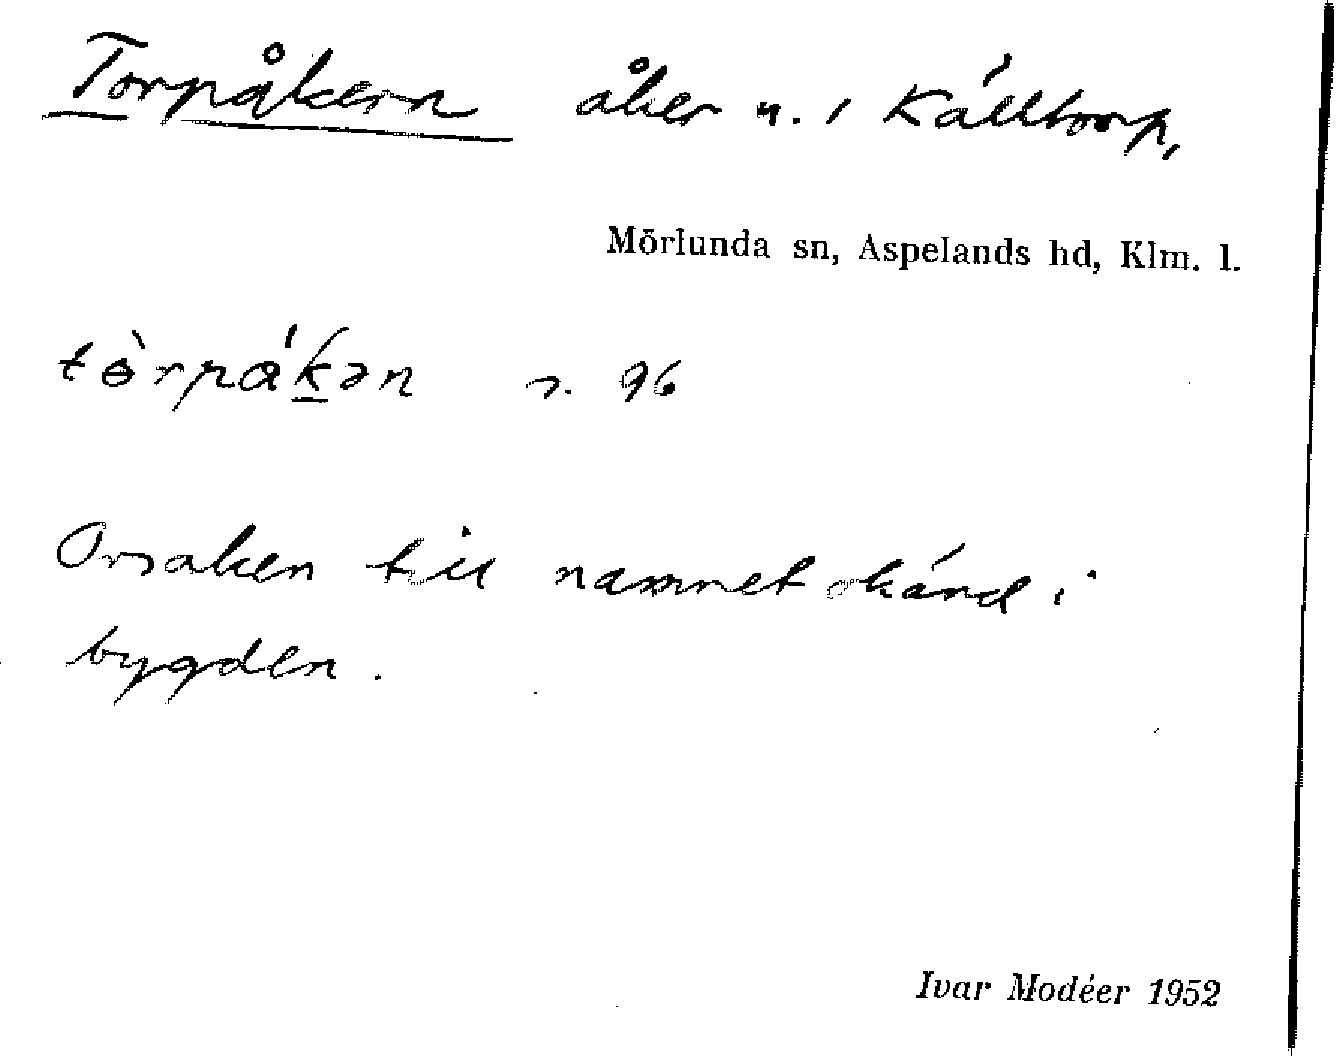 Torpåkern åker n. i Källtorp,
Mörlunda sn, Aspelands hd, Klm. l.
tòrpákən s. 96
Orsaken till namnet okänd i
bygden.
Ivar Modéer 1952